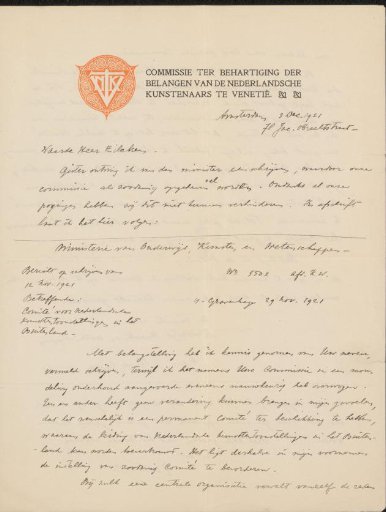 COMMISSIE TER BEHARTIGING DER
BELANGEN VAN DE NEDERLANDSCHE
KUNSTENAARS TE VENETIË.
Amsterdam, 3 Dec. 1921
Jac. Obrechtstraat
Waarde Heer
Gister ontving ik van den minister een schrijven, waardoor onze
commissie als zoodanig opgeheven zal worden. Ondanks al onze
pogingen hebben wij dit niet kunnen verhinderen. De afschrift
laat ik hier volgen:
Ministerie van Onderwijs, Kunsten en Wetenschappen
Bericht op schrijven van
12 Nov. 1921
No 5502 Afd. K.W.
Betreffende:
's-Gravenhage 29 Nov. 1921
Comité voor Nederlandsche
kunsttentoonstellingen in het
Buitenland
Met belangstelling heb ik kennis genomen van Uw nevens
vermeld schrijven, terwijl ik het namens Uwe Commissie in een mon-
deling onderhoud aangevoerde eveneens nauwkeurig heb overwogen.
Een en ander heeft geen verandering kunnen brengen in mijn gevoelen,
dat het wenschelijk is een permanent Comité ter beschikking te hebben,
waaraan de leiding van Nederlandsche kunsttentoonstellingen in het Buiten-
land kan worden toevertrouwd. Het ligt derhalve in mijn voornemen
de instelling van zoodanig Comité te bevorderen.
Bij zulk eene centrale organisatie vervalt vanzelf de reden